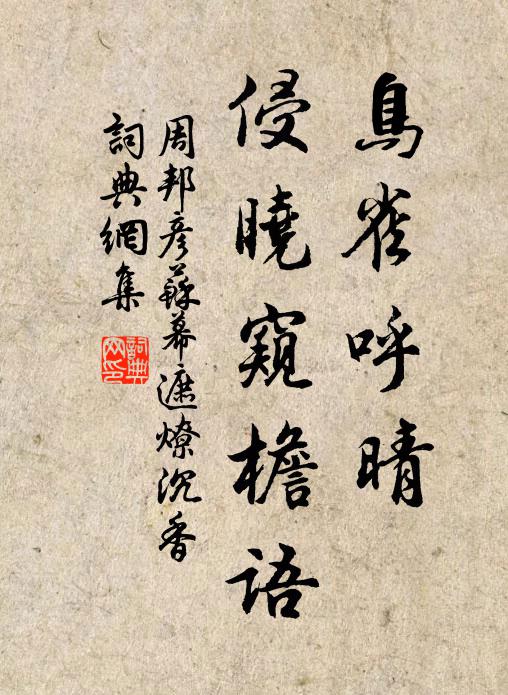 鳥雀呼晴
侵曉窺檐語
周邦彦蘇幕遮燎沉香
詞典網集
詞典网印